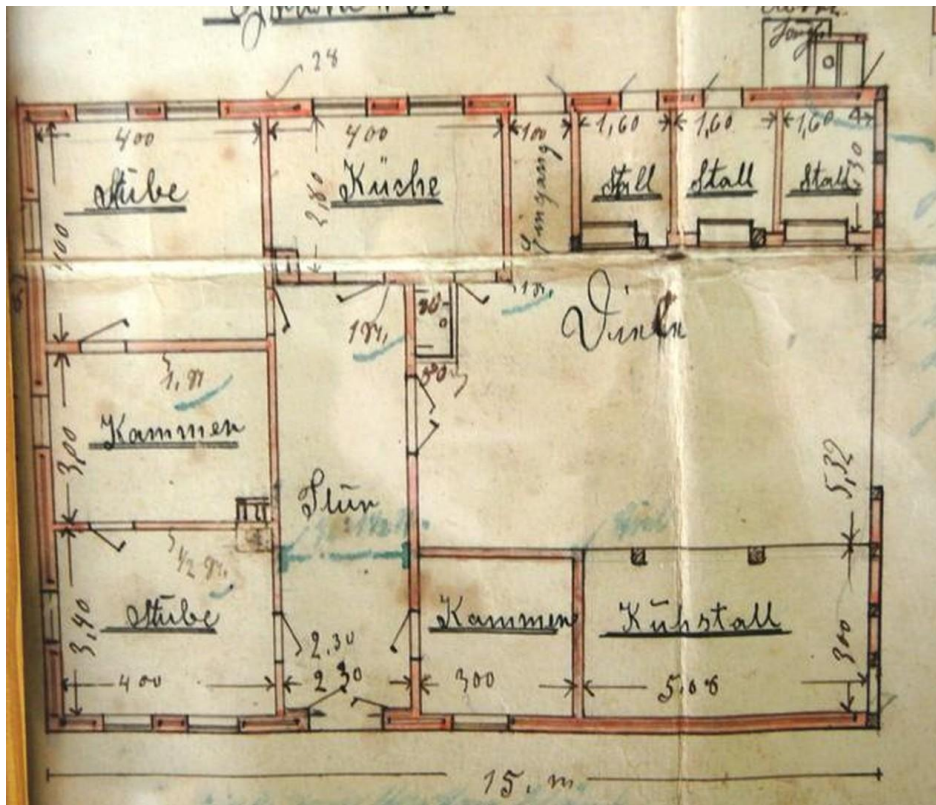 28
400
400
100
1,60
1,60
1,60
Stube
Küche
Eingang
Stall
Stall
Stall
2,80
Diele
Kammer
3,00
Flur
5,32
1/2
Stube
3,40
Kammer
Kuhstall
300
2.30
400
2 30
300
5,08
15. m